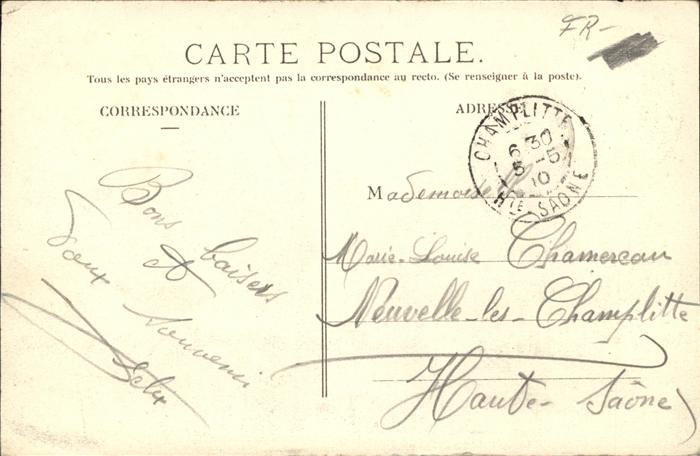 FR-
CARTE POSTALE.
Tous les pays étrangers n'acceptent pas la correspondance au recto. (Se renseigner à la poste).
CORRESPONDANCE
ADRESSE
CHAMPLITTE
6 30
5 -5
10
HTE SAÔNE
Bons baisers
et
doux souvenir
Mademoise
Marie-Louise Chamereau
Neuvelle-les-Champlitte
Haute-Saône